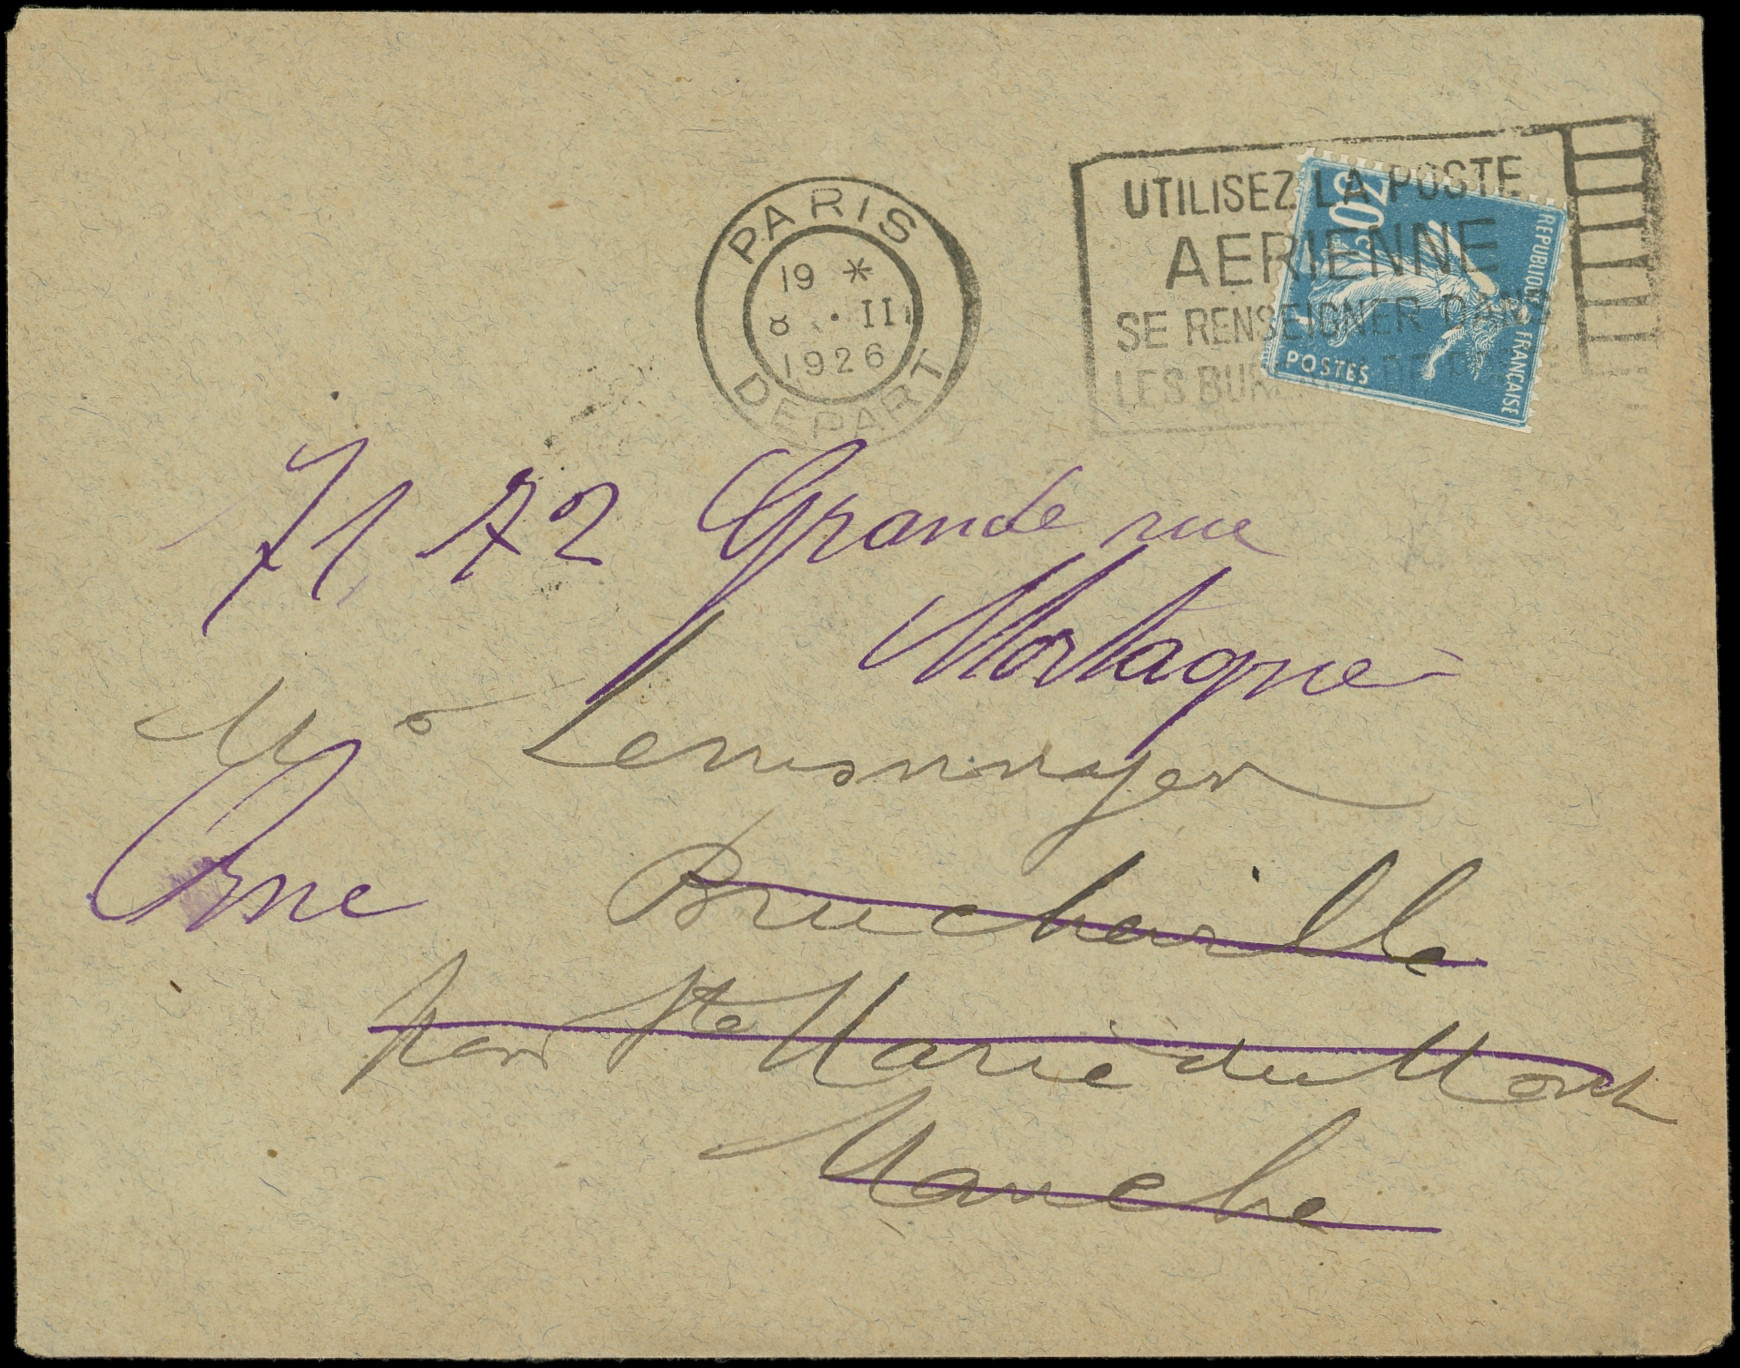 PARIS
19 *
8 · II
1926
DEPART
UTILISEZ LA POSTE
AERIENNE
SE RENSEIGNER DANS
LES BUREAUX DE POSTE
30c
REPUBLIQUE FRANCAISE
POSTES
71 72 Grande rue
Mortagne
Orne
Mr Lemonnyer
Brucheville
par Ste Marie du Mont
Manche